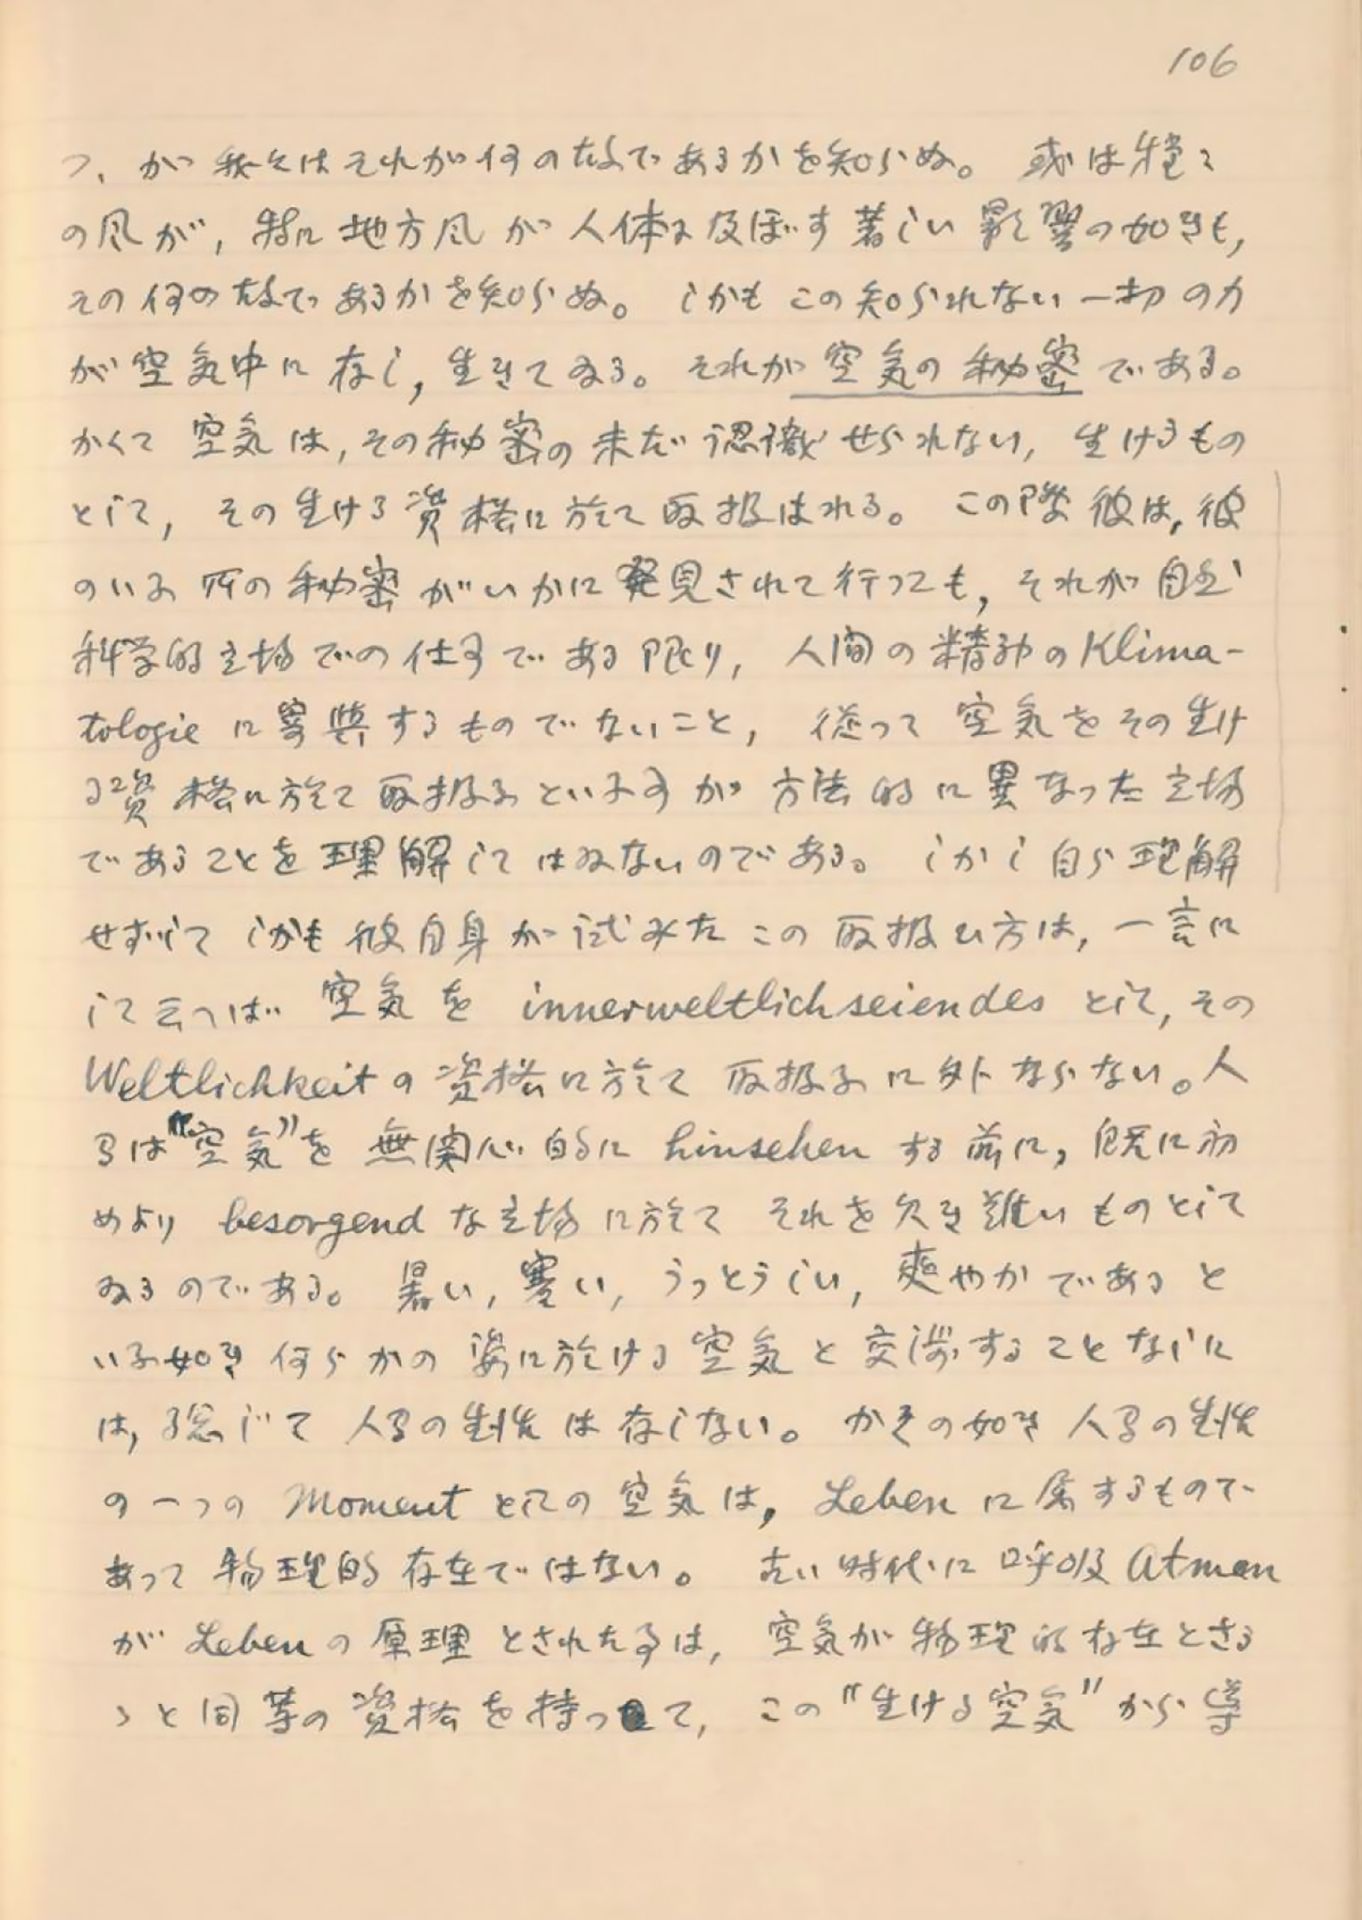 106
つ、が我々はそれが何の故であるかを知らぬ。 或は種々
の風が, 特に地方風が人体に及ぼす著しい影響の如きも,
その何の故であるかを知らぬ。 しかもこの知られない一切の力
が空気中に存し, 生きてゐる。それが空気の秘密である。
かくて空気は, その秘密の未だ認識せられない, 生けるもの
として, その生ける資格に於て取扱はれる。 この際彼は, 彼
のいふ所の秘密がいかに発見されて行つても, それが自然
科学的立場での仕事である限り, 人間の精神のKlima-
tologieに寄與するものでないこと, 従って空気をその生け
る資格に於て取扱ふといふ事が方法的に異なった立場
であることを理解してはゐないのである。 しかし自ら理解
せずしてしかも彼自身が試みたこの取扱ひ方は, 一言に
して云へば空気を innerweltlichseiendes として, その
Weltlichkeitの資格に於て取扱ふに外ならない。人
間は"空気"を無関心的に hinsehen する前に, 既に初
めより besorgend な立場に於て それを欠き難いものとして
ゐるのである。 暑い, 寒い, うっとうしい, 爽やかであると
いふ如き何らかの姿に於ける空気と交渉することなしに
は, 総じて人間の生活は存しない。 かその如き人間の生活
の一つの Moment としての空気は, Leben に属するもので
あって物理的存在ではない。 古い時代に呼吸 atman
が Leben の原理とされた事は, 空気が物理的存在とさる
ゝと同等の資格を持つて, この"生ける空気"から導